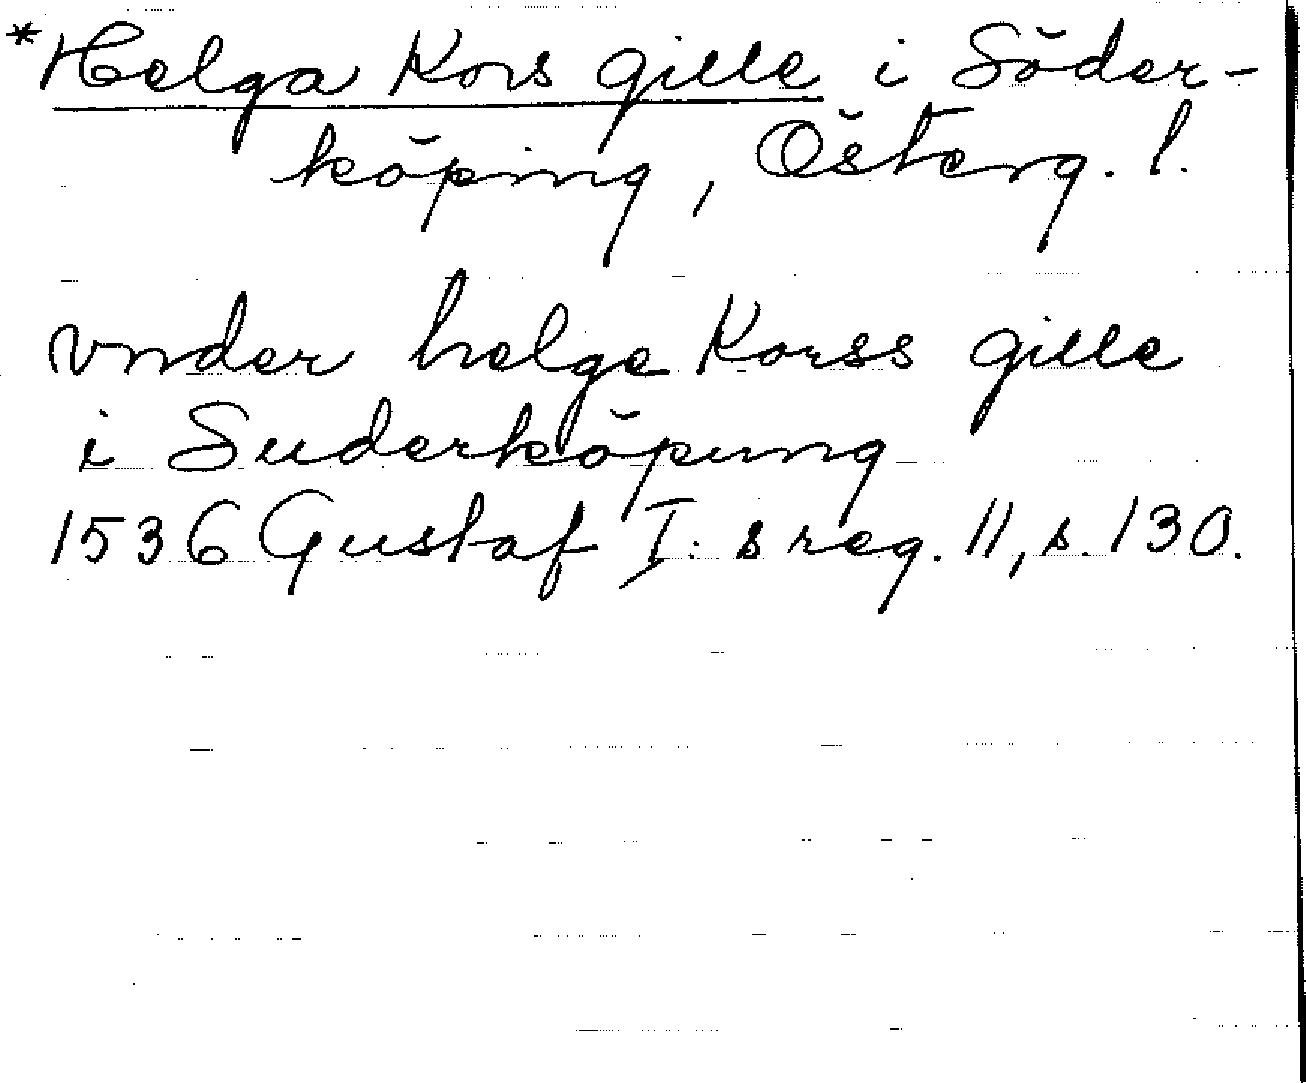 *Helga Kors gille i Söder-
köping, Österg. l.
vnder helge Korss gille
i Suderköpung
1536 Gustaf I:s reg. 11, s. 130.